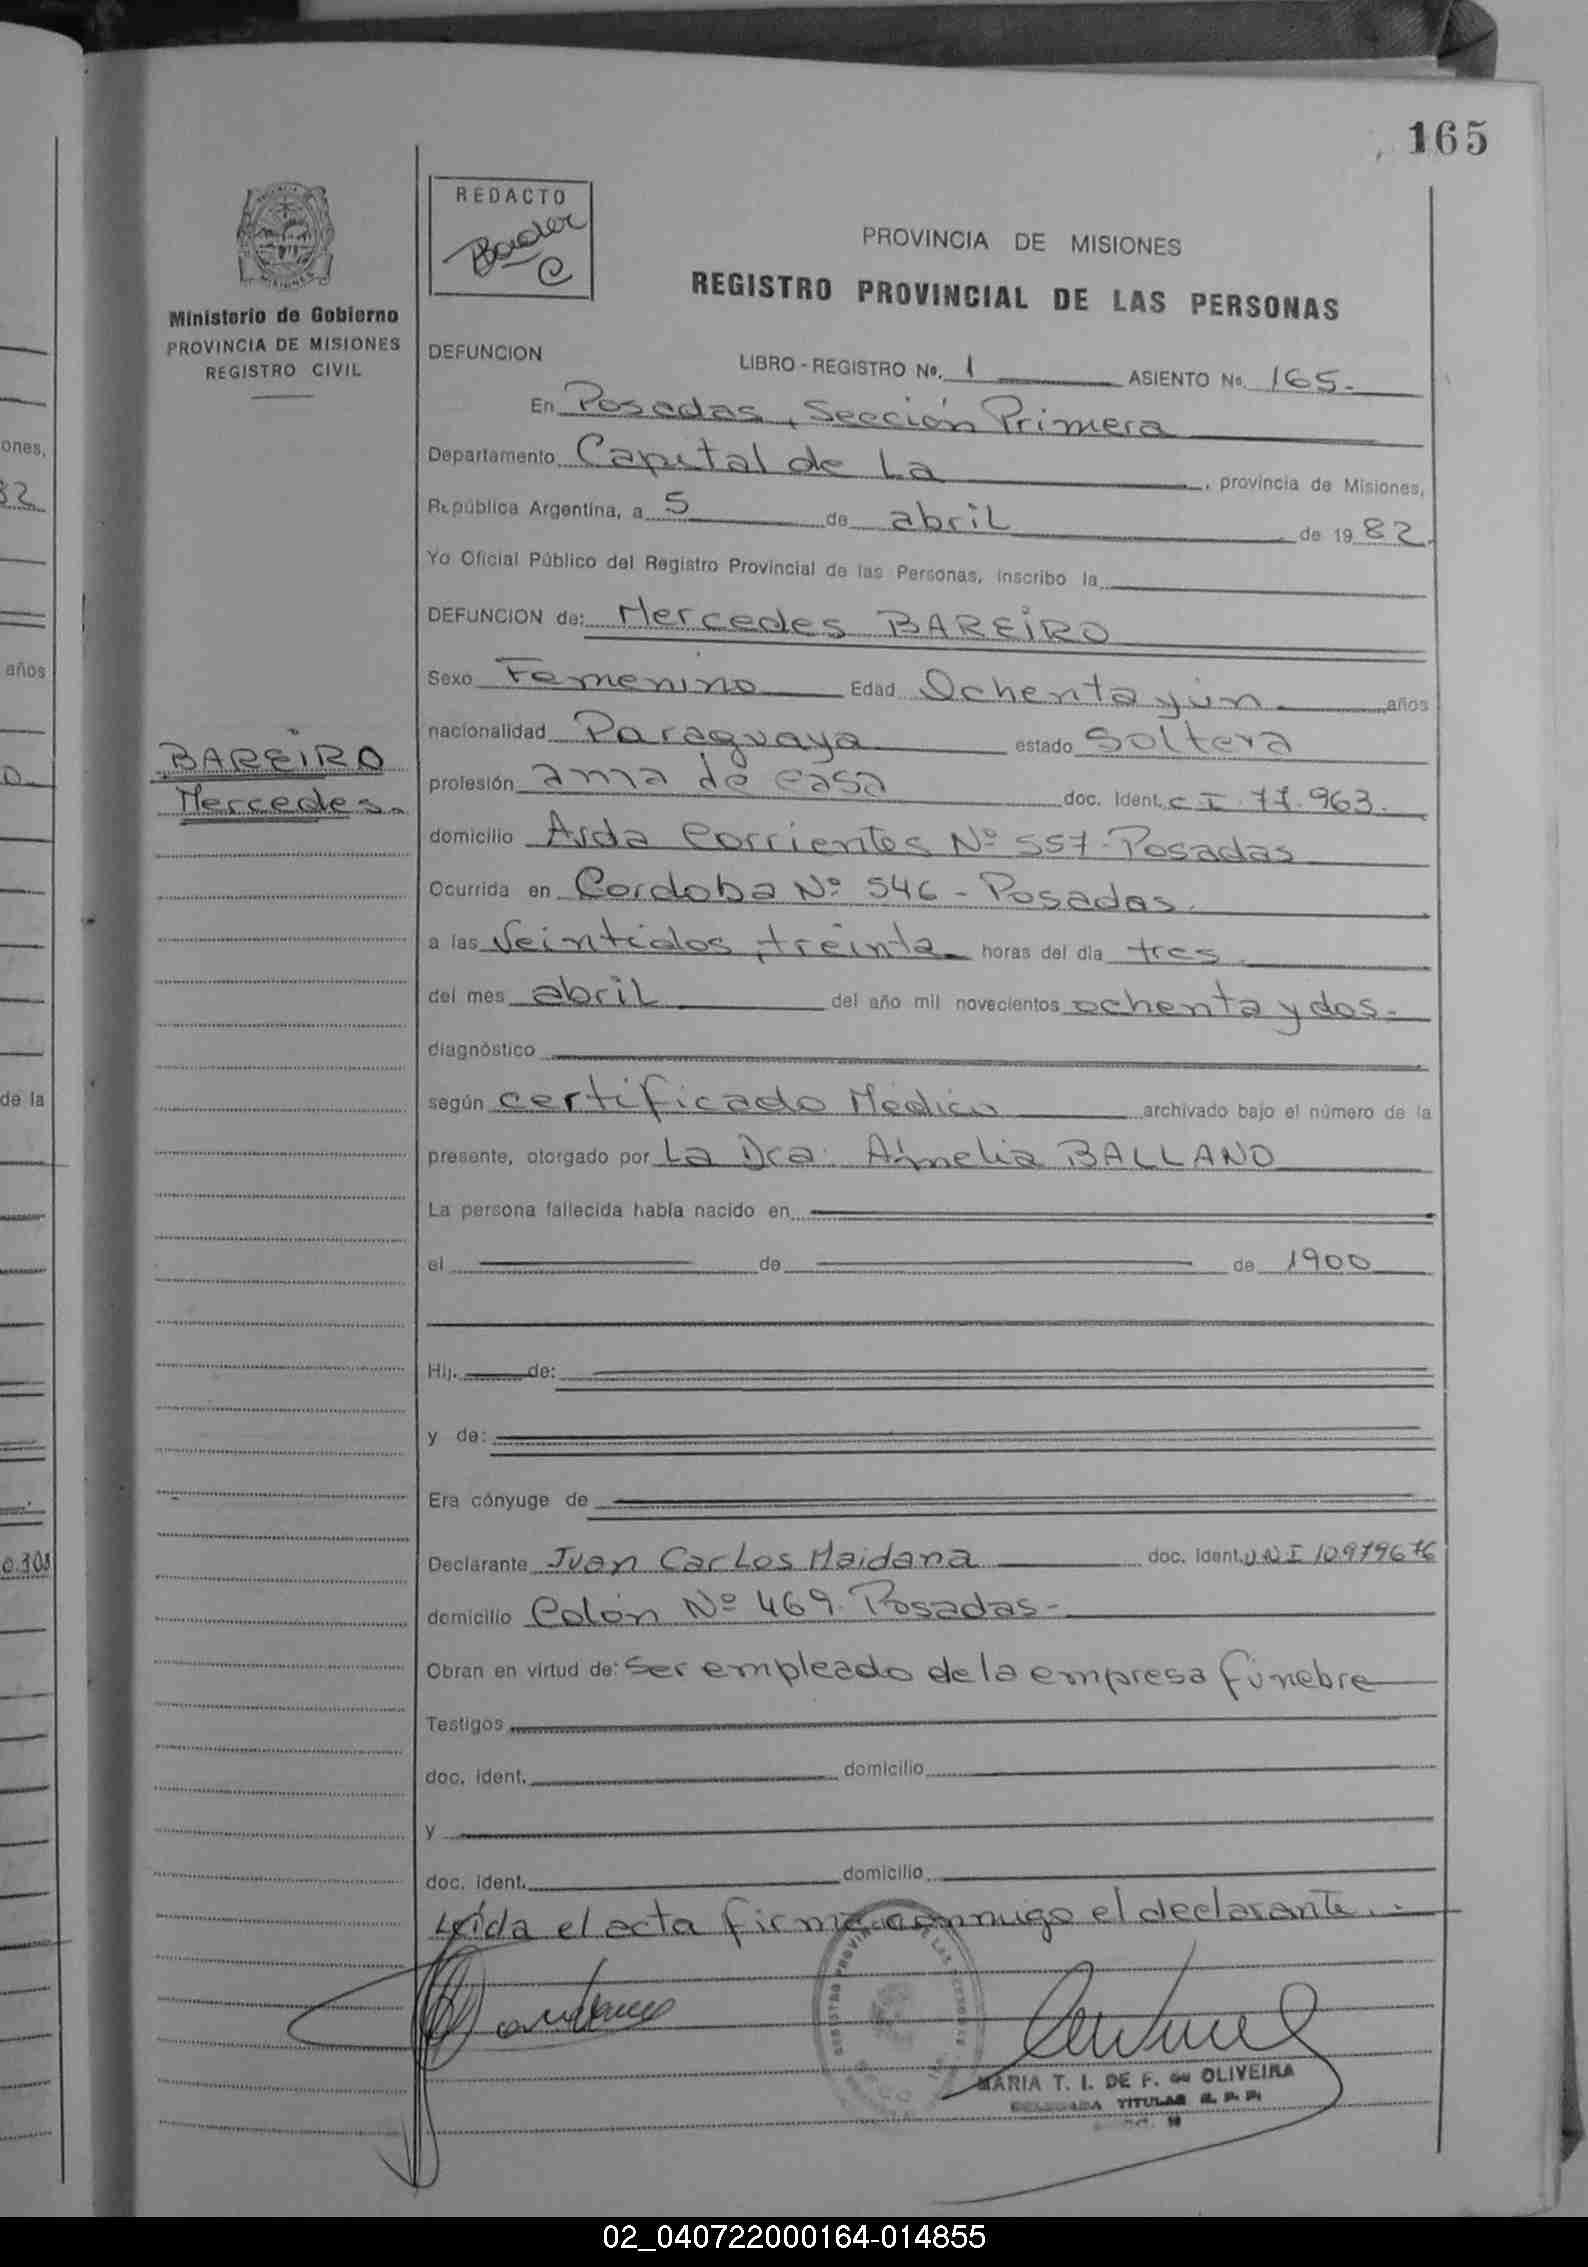 165
REDACTO
PROVINCIA DE MISIONES
REGISTRO PROVINCIAL DE LAS PERSONAS
Ministerio de Gobierno
PROVINCIA DE MISIONES
REGISTRO CIVIL
DEFUNCION LIBRO - REGISTRO Nº. 1 ASIENTO Nº. 165.-
En Posadas, Sección Primera
Departamento Capital de La, provincia de Misiones,
República Argentina, a 5 de abril de 1982.
Yo Oficial Público del Registro Provincial de las Personas, inscribo la
DEFUNCION de: Mercedes BAREIRO
Sexo Femenino Edad Ochenta y ún años
nacionalidad Paraguaya estado Soltera
BAREIRO
Mercedes.-
profesión ama de casa doc. ident. C I. 77.963.
domicilio Avda Corrientes Nº 557. Posadas
Ocurrida en Cordoba Nº 546 - Posadas.
a las Veintidos, treinta horas del día tres
del mes abril del año mil novecientos ochenta y dos.-
diagnóstico
según certificado Médico archivado bajo el número de la
presente, otorgado por La Dra. Amelia BALLANO
La persona fallecida había nacido en
el de de 1900
Hij. de:
y de:
Era cónyuge de
Declarante Juan Carlos Maidana doc. ident. D.N.I 10.979676
domicilio Colón Nº 469. Posadas-
Obran en virtud de: Ser empleado de la empresa fúnebre
Testigos
doc. ident. domicilio
y
doc. ident. domicilio
Leída el acta firma conmigo el declarante..-
MARIA T. I. DE F. de OLIVEIRA
DELEGADA TITULAR R. P. P.
ones,
82
años
de la
0.308
02_040722000164-014855